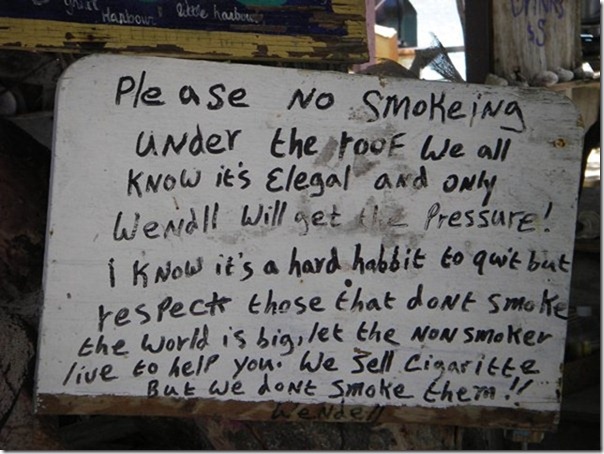 Harbour little harbour
$5
Please No Smokeing
under the roof We all
KNOW it's Elegal and only
Wendll Will get the Pressure!
i KNOW it's a hard habbit to quit but
respeck those that dont smoke
the World is big, let the NON smoker
live to help you. We Sell Cigaritte
But We dont Smoke them!!
Wendell